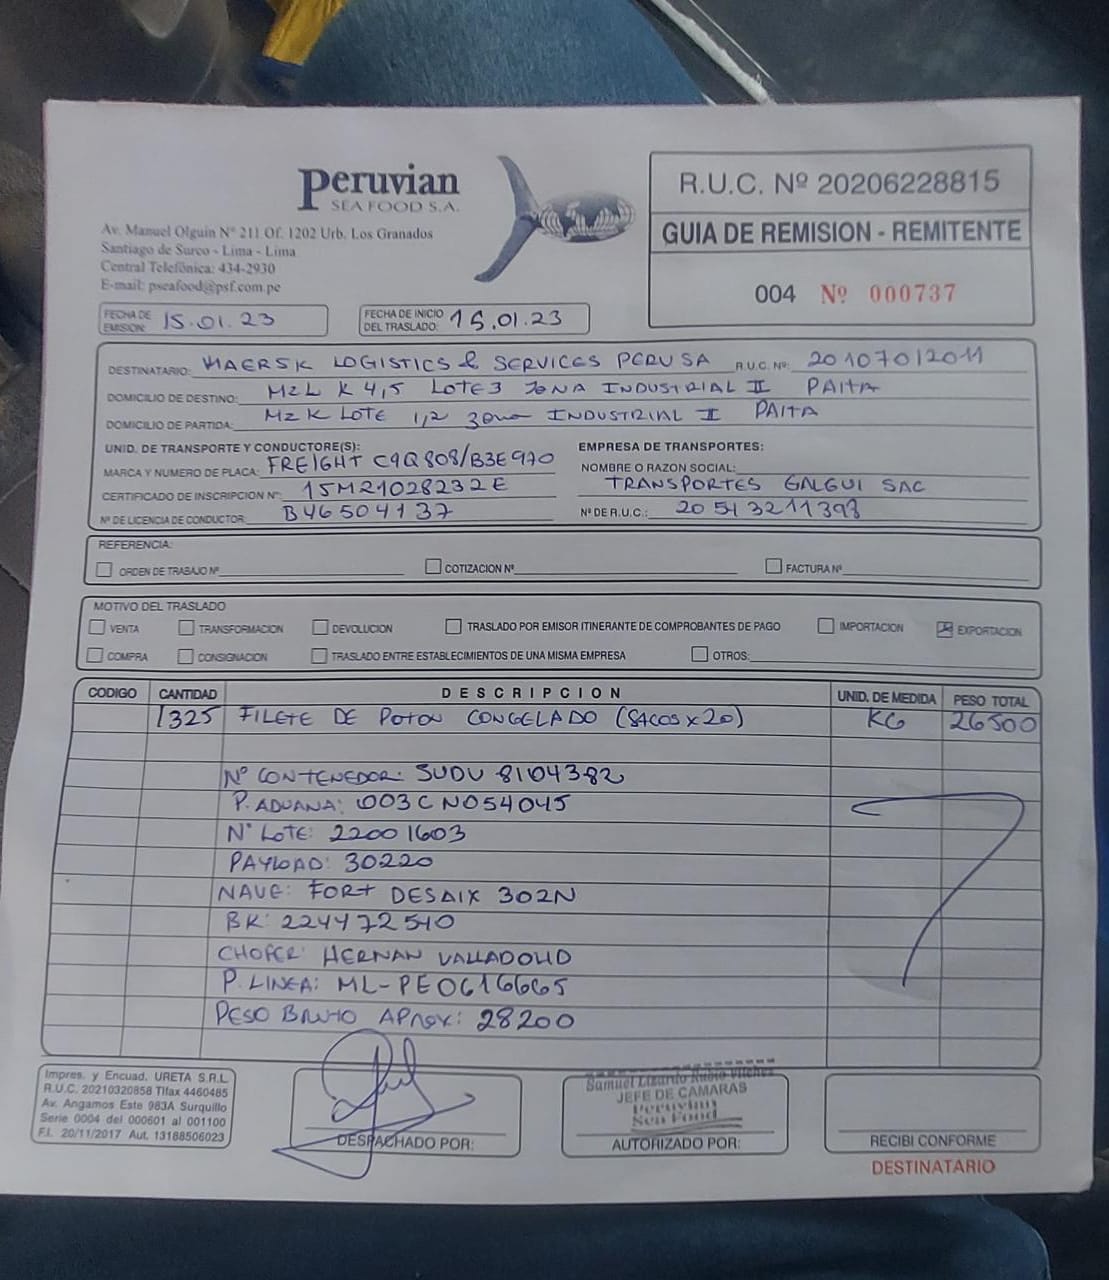 Peruvian
SEA FOOD S.A.
Av. Manuel Olguin Nº 211 Of. 1202 Urb. Los Granados
Santiago de Surco - Lima - Lima
Central Telefónica: 434-2930
E-mail: pseafood@psf.com.pe
R.U.C. Nº 20206228815
GUIA DE REMISION - REMITENTE
004 Nº 000737
FECHA DE EMISION: 15.01.23
FECHA DE INICIO DEL TRASLADO: 15.01.23
DESTINATARIO: MAERSK LOGISTICS & SERVICES PERU SA R.U.C. Nº: 20107012011
DOMICILIO DE DESTINO: MZL K 4,5 LOTE 3 ZONA INDUSTRIAL II PAITA
DOMICILIO DE PARTIDA: MZ K LOTE 1,2 ZONA INDUSTRIAL II PAITA
UNID. DE TRANSPORTE Y CONDUCTORE(S):
MARCA Y NUMERO DE PLACA: FREIGHT C9Q808/B3E970
CERTIFICADO DE INSCRIPCION Nº: 15M21028232E
Nº DE LICENCIA DE CONDUCTOR: B46504137
EMPRESA DE TRANSPORTES:
NOMBRE O RAZON SOCIAL:
TRANSPORTES GALGUI SAC
Nº DE R.U.C.: 20513211393
REFERENCIA:
ORDEN DE TRABAJO Nº COTIZACION Nº FACTURA Nº
MOTIVO DEL TRASLADO
VENTA TRANSFORMACION DEVOLUCION TRASLADO POR EMISOR ITINERANTE DE COMPROBANTES DE PAGO IMPORTACION EXPORTACION
COMPRA CONSIGNACION TRASLADO ENTRE ESTABLECIMIENTOS DE UNA MISMA EMPRESA OTROS:
CODIGO CANTIDAD DESCRIPCION UNID. DE MEDIDA PESO TOTAL
1325 FILETE DE POTON CONGELADO (SACOS x 20) KG 26500
Nº CONTENEDOR: SUDU 8104382
P. ADUANA: 003CN054045
Nº LOTE: 22001603
PAYLOAD: 30220
NAVE: FORT DESAIX 302N
BK: 224472510
CHOFER: HERNAN VALLADOLID
P. LINEA: ML-PE0616665
PESO BRUTO APROX: 28200
Impres. y Encuad. URETA S.R.L.
R.U.C. 20210320858 Tlfax 4460485
Av. Angamos Este 983A Surquillo
Serie 0004 del 000601 al 001100
F.I. 20/11/2017 Aut. 13188506023
DESPACHADO POR:
Samuel Lizardo Rubio Vilchez
JEFE DE CAMARAS
Peruvian
Sea Food
AUTORIZADO POR:
RECIBI CONFORME
DESTINATARIO